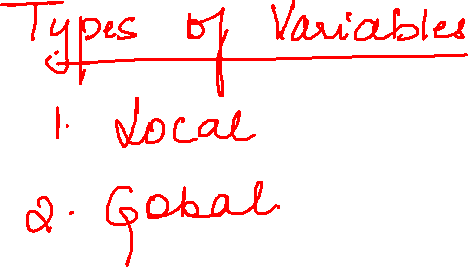 Types of Variables
1. Local
2. Gobal.